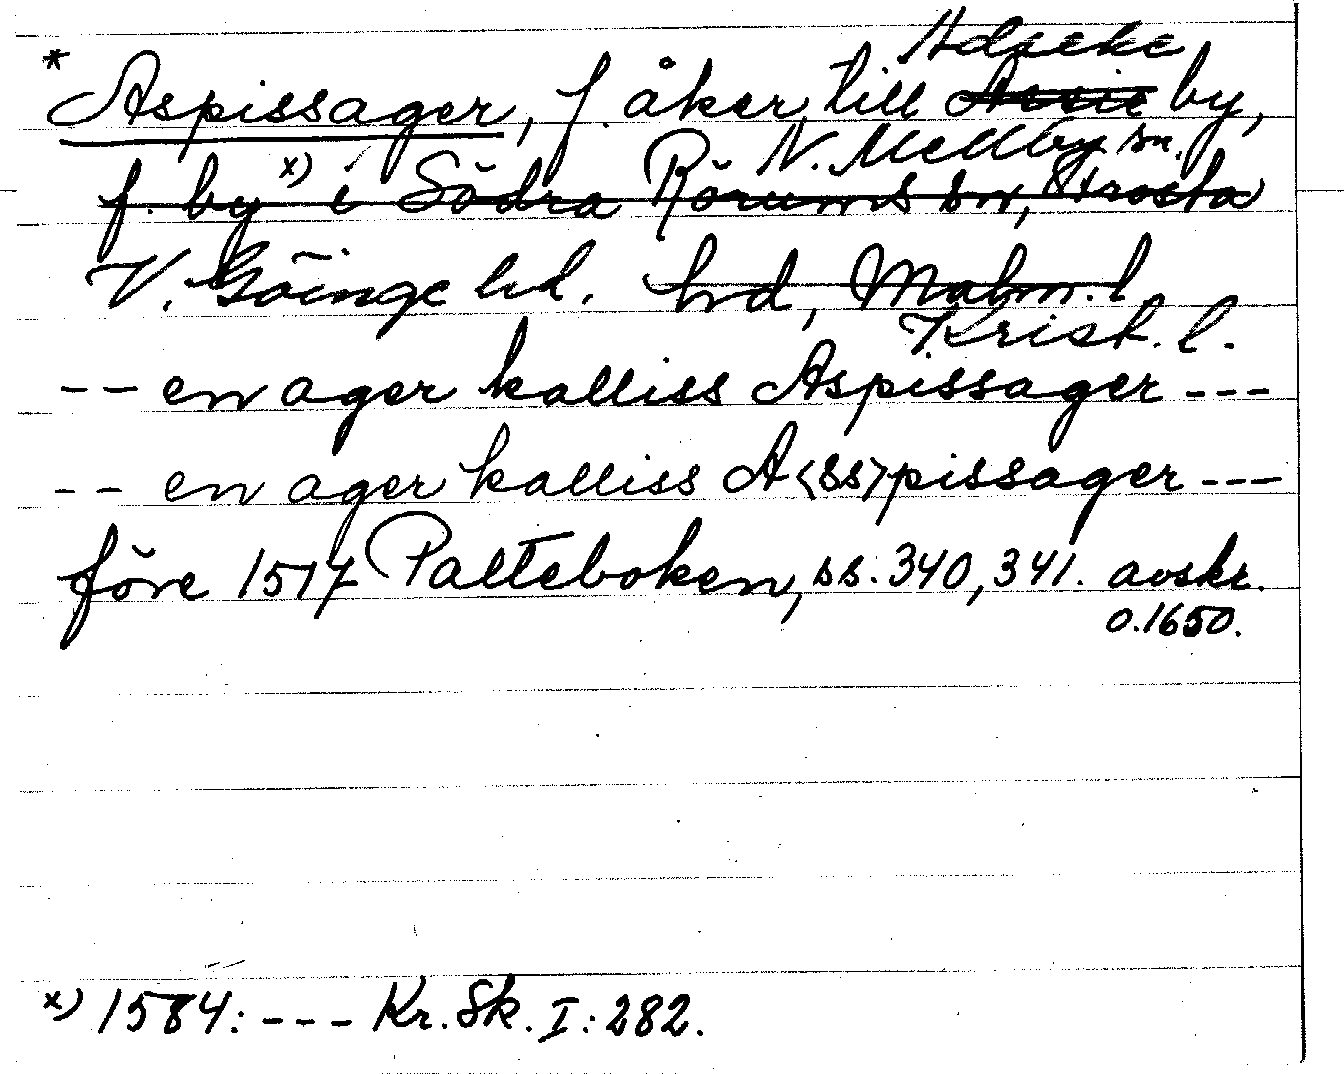 Adseke
* Aspissager, f. åker, till by,
N. Mellby sn.
f. by x) i Södra Rörums sn, Frosta
V. Göinge hd. hrd, Malm. l
Krist. l.
-- en ager kalliss Aspissager ---
-- en ager kalliss A<ss>pissager ---
före 1517 Palteboken, ss. 340, 341. avskr.
o. 1650.
x) 1584: --- Kr. Sk. I: 282.